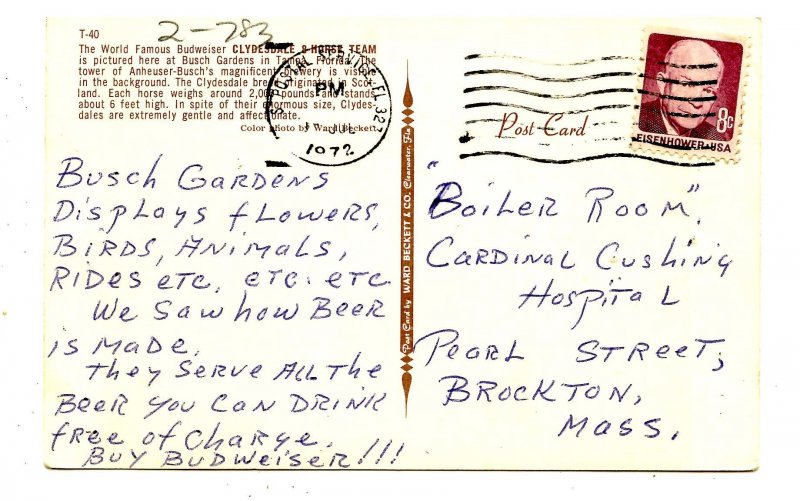 T-40
2-783
The World Famous Budweiser CLYDESDALE 8-HORSE TEAM
is pictured here at Busch Gardens in Tampa, Florida. The
tower of Anheuser-Busch's magnificent brewery is visible
in the background. The Clydesdale breed originated in Scot-
land. Each horse weighs around 2,000 pounds and stands
about 6 feet high. In spite of their enormous size, Clydes-
dales are extremely gentle and affectionate.
Color photo by Ward Beckett
POSTAL SERVICE FL
PM
JUL
1972
Post Card
8c
EISENHOWER·USA
Busch Gardens
Displays flowers,
Birds, Animals,
Rides etc, etc. etc
We saw how Beer
is made.
They serve all the
Beer you can drink
free of charge.
Buy Budweiser!!!
Post Card by WARD BECKETT & CO. Clearwater, Fla.
"Boiler Room",
Cardinal Cushing
Hospital
Pearl Street,
Brockton,
Mass.